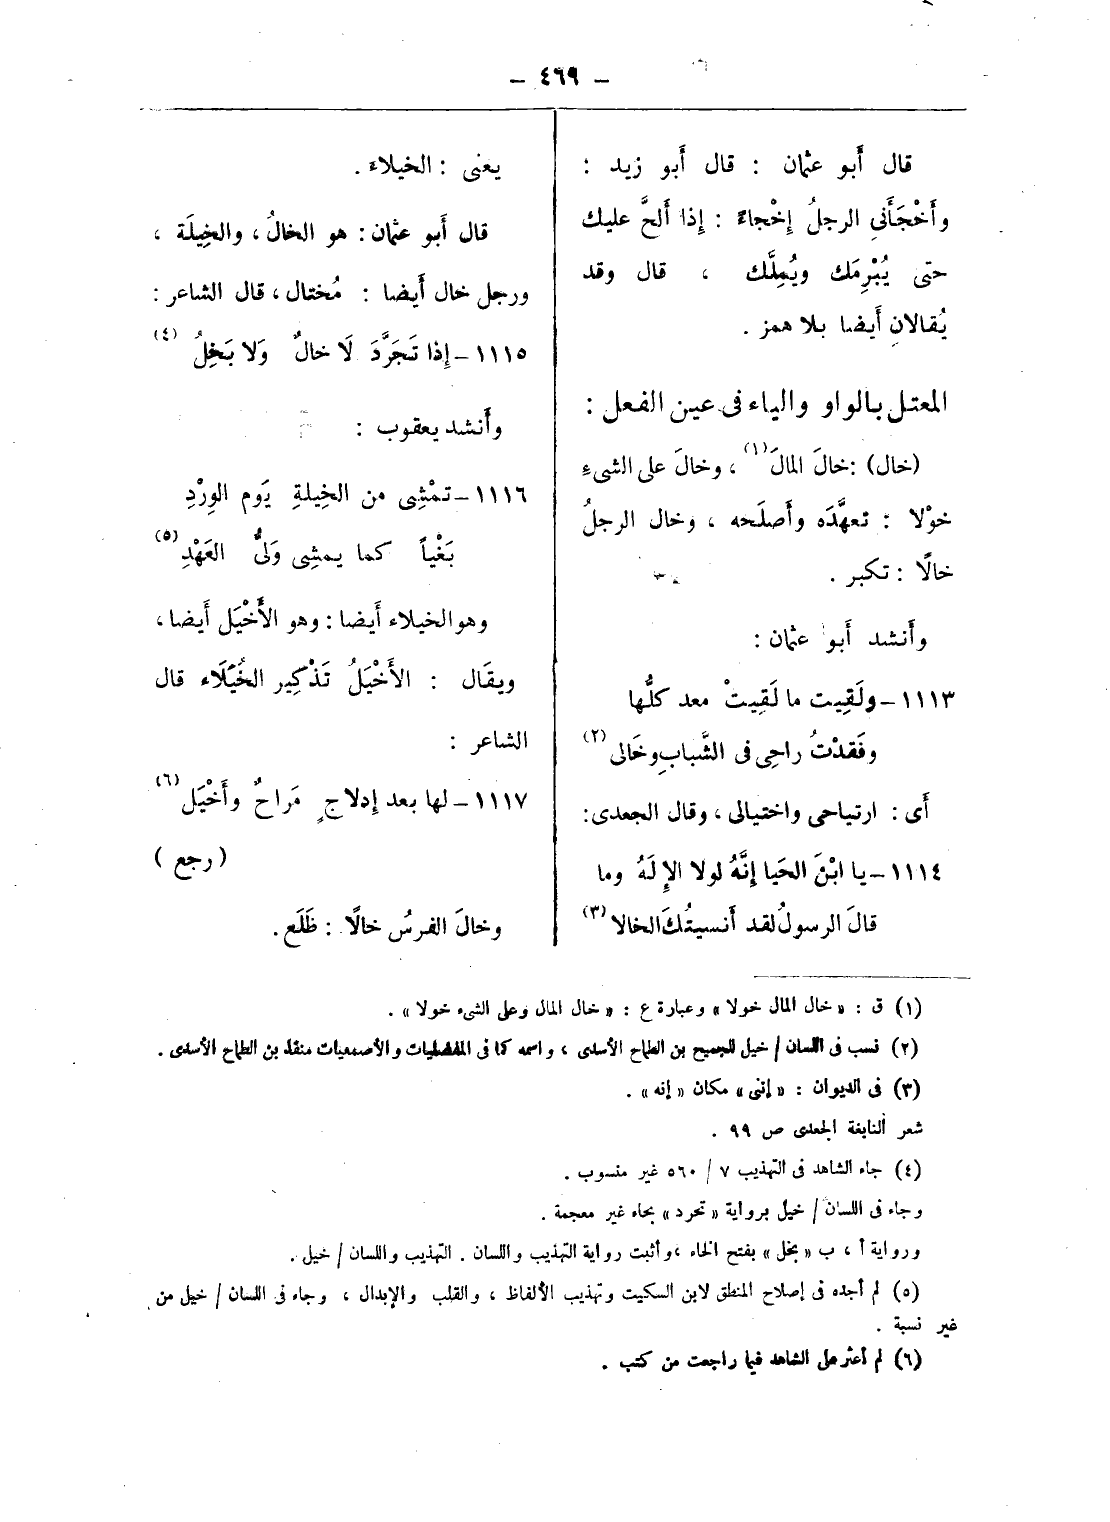 – ٤٦٩ –
قال أَبو عثمان : قال أَبو زيد :
وأَخْجَأَنى الرجلُ إِخْجاءً : إِذا أَلحَّ عليك
حتى يُبْرِمَك ويُمِلَّك ، قال وقد
يُقالانِ أَيضا بلا همز .
المعتل بالواو والياء فى عين الفعل :
(خال) : خالَ المالَ (١) ، وخالَ على الشىءِ
خوْلا : تعهَّدَه وأَصلَحه ، وخال الرجلُ
خالًا : تكبر .
وأَنشد أَبو عثمان :
١١١٣ – ولَقِيت ما لَقِيتْ معد كلُّها
وفَقدْتُ راحِى فى الشَّبابِ وخَالى (٢)
أَى : ارتياحى واختيالى ، وقال الجعدى :
١١١٤ – يا ابْنَ الحَيا إِنَّهُ لولا الإِلَهُ وما
قالَ الرسولُ لقد أَنسيتُكَ الخالا (٣)
يعنى : الخيلاءَ .
قال أَبو عثمان : هو الخالُ ، والخِيلَة ،
ورجل خال أَيضا : مُختال ، قال الشاعر :
١١١٥ – إِذا تَجَرَّدَ لَا خالٌ وَلا بَخِلُ (٤)
وأَنشد يعقوب :
١١١٦ – تمْشِى من الخِيلةِ يَوم الوِرْدِ
بَغْياً كما يمشِى وَلىُّ العَهْدِ (٥)
وهو الخيلاء أَيضا : وهو الأَخْيَل أَيضا ،
ويقَال : الأَخْيَلُ تَذْكِير الخُيَلَاء قال
الشاعر :
١١١٧ – لها بعد إِدلاجٍ مَراحٌ وأَخْيَل (٦)
( رجع )
وخالَ الفرسُ خالًا : ظَلَع .
(١) ق : « خال المال خولا » وعبارة ع : « خال المال وعلى الشىء خولا » .
(٢) نسب فى اللسان / خيل للجميح بن الطماح الأسدى ، واسمه كما فى المفضليات والأصمعيات منقذ بن الطماح الأسدى .
(٣) فى الديوان : « إننى » مكان « إنه » .
شعر النابغة الجعدى ص ٩٩ .
(٤) جاء الشاهد فى التهذيب ٧ / ٥٦٠ غير منسوب .
وجاء فى اللسان / خيل برواية « تحرد » بحاء غير معجمة .
ورواية أ ، ب « بخل » بفتح الخاء ، وأثبت رواية التهذيب واللسان . التهذيب واللسان / خيل .
(٥) لم أجده فى إصلاح المنطق لابن السكيت وتهذيب الألفاظ ، والقلب والإبدال ، وجاء فى اللسان / خيل من
غير نسبة .
(٦) لم أعثر على الشاهد فيما راجعت من كتب .